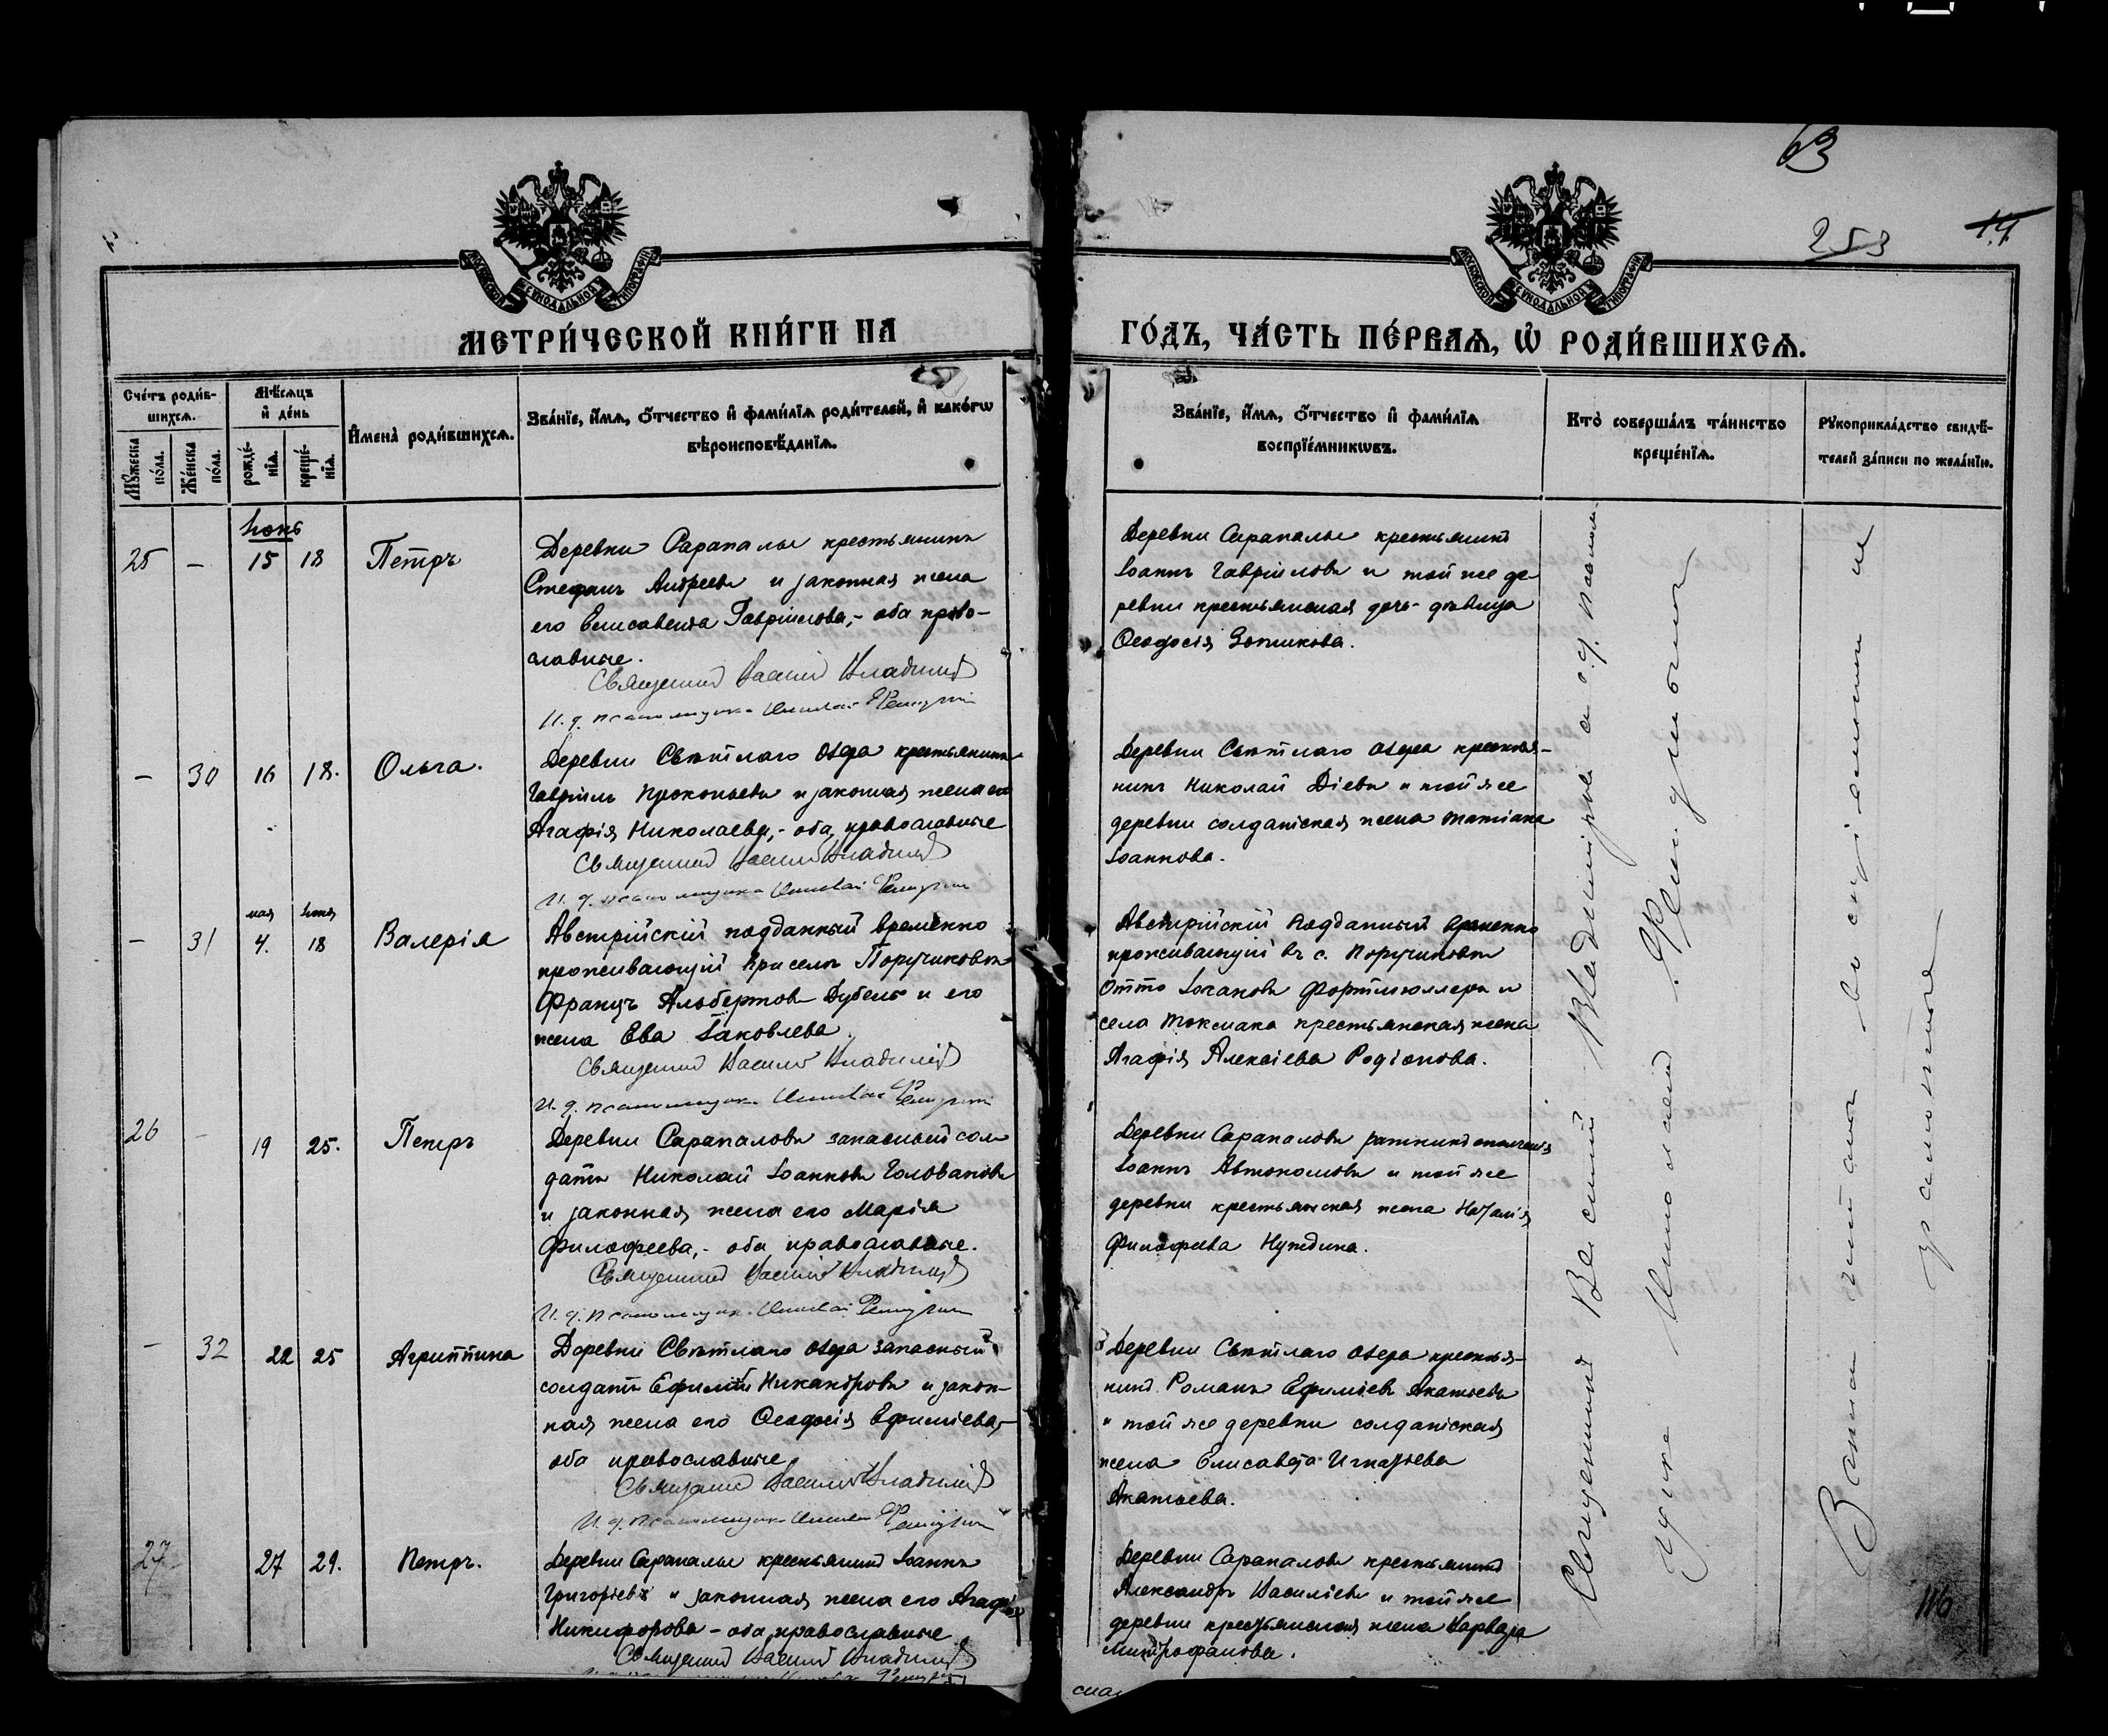 63
253
14
МОСКОВСКОЙ СУНОДАЛЬНОЙ ТИПОГРАФІИ
МОСКОВСКОЙ СУНОДАЛЬНОЙ ТИПОГРАФІИ
МЕТРИ́ЧЕСКОЙ КНИ́ГИ НА
ГО́ДЪ, ЧА́СТЬ ПЕ́РВАѦ, Ѡ҆ РОДИ́ВШИХСѦ.
Сче́тъ роди́в-
шихсѧ.
Мꙋ́жеска
по́ла.
Же́нска
по́ла.
Мѣ́сѧцъ
и҆ де́нь
рожде́-
нїѧ.
креще́-
нїѧ.
И҆мена̀ роди́вшихсѧ.
Зва́нїе, и҆́мѧ, ѻ҆́тчество и҆ фами́лїѧ роди́телей, и҆ како́гѡ
вѣроисповѣ́данїѧ.
Зва́нїе, и҆́мѧ, ѻ҆́тчество и҆ фами́лїѧ
воспрїе́мникѡвъ.
Кто̀ соверша́лъ та́инство
креще́нїѧ.
Рꙋкоприкла́дство свидѣ́-
телей за́писи по жела́нїю.
Іюнь
25 — 15 18 Петръ
Деревни Сарапалы крестьянинъ
Стефанъ Андреевъ и законная жена
его Елисавета Гавріилова,- оба право-
славные.
Священникъ Василій Владиміровъ
И. д. псаломщика Николай
Деревни Сарапалы крестьянинъ
Іоаннъ Гавріиловъ и той же де-
ревни крестьянская дочь- дѣвица
Ѳеодосія Зотикова.
— 30 16 18. Ольга.
Деревни Свѣтлаго Озера крестьянинъ
Гавріилъ Прокопьевъ и законная жена его
Агафія Николаева,- оба православные
Священникъ Василій Владиміровъ
И. д. псаломщика Николай
Деревни Свѣтлаго Озера крестья-
нинъ Николай Діевъ и той же
деревни солдатская жена Татіана
Іоаннова.
мая іюня
— 31 4. 18 Валерія
Австрійскій подданный временно
проживающій при селѣ Поручиковѣ
Францъ Альбертовъ Дубель и его
жена Ева Іаковлева.
Священникъ Василій Владиміровъ
И. д. псаломщика Николай
Австрійскій подданный временно
проживающій въ с. Поручиковѣ
Отто Іогановъ и
села Токмака крестьянская жена
Агафія Алексіева Родіонова.
26 — 19 25. Петръ
Деревни Сарапаловъ запасный сол-
датъ Николай Іоанновъ Головановъ
и законная жена его Марія
Филофеева,- оба православные.
Священникъ Василій Владиміровъ
И. д. псаломщика Николай
Деревни Сарапаловъ ратникъ ополченія
Іоаннъ Автономовъ и той же
деревни крестьянская жена Наталія
Филофеева Нуждина.
— 32 22 25 Агриппина
Деревни Свѣтлаго Озера запасный
солдатъ Ефимій Никандровъ и закон-
ная жена его Ѳеодосія Ефиміева,-
оба православные
Священникъ Василій Владиміровъ
И. д. псаломщика Николай
Деревни Свѣтлаго Озера крестья-
нинъ Романъ Ефиміевъ Акатьевъ
и той же деревни солдатская
жена Елисавета Игнатьева
Акатьева.
27 27 29. Петръ.
Деревни Сарапалы крестьянинъ Іоаннъ
Григорьевъ и законная жена его Агафія
Никифорова - оба православные
Священникъ Василій Владиміровъ
Деревни Сарапаловъ крестьянинъ
Александръ Василіевъ и той же
деревни крестьянская жена Варвара
Митрофанова.
Священникъ Василій Владиміровъ и и. д. псалом-
щика Николай
116